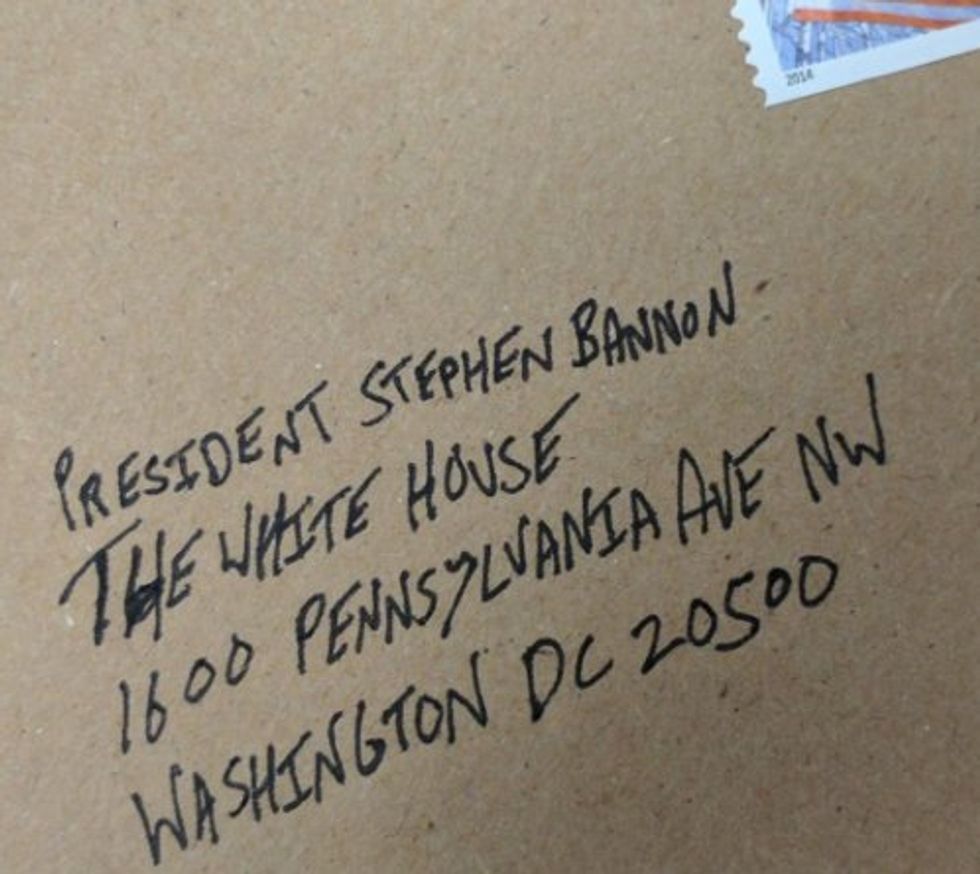 2014
PRESIDENT STEPHEN BANNON
THE WHITE HOUSE
1600 PENNSYLVANIA AVE NW
WASHINGTON DC 20500